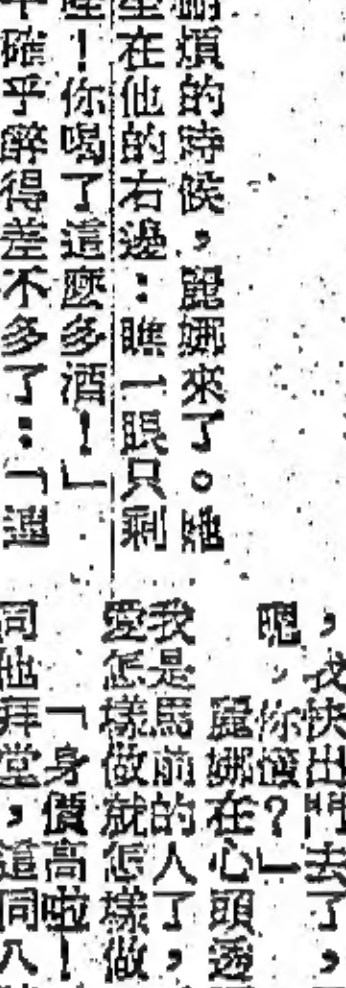 煩的時候，麗娜來了。她
坐在他的右邊：瞧一眼只剩
！你喝了這麼多酒！」
確乎醉得差不多了：「連
，我快出門去了，
呢，你懂？」
麗娜在心頭透
我是馬前的人了，
愛怎樣做就怎樣做，
「身價高啦！
同他拜堂，這同八